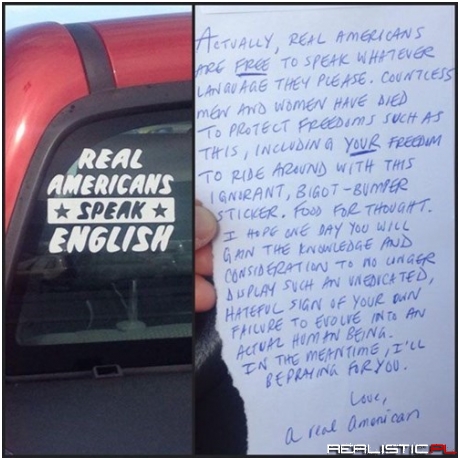 REAL
AMERICANS
★ SPEAK ★
ENGLISH
ACTUALLY, REAL AMERICANS
ARE FREE TO SPEAK WHATEVER
LANGUAGE THEY PLEASE. COUNTLESS
MEN AND WOMEN HAVE DIED
TO PROTECT FREEDOMS SUCH AS
THIS, INCLUDING YOUR FREEDOM
TO RIDE AROUND WITH THIS
IGNORANT, BIGOT-BUMPER
STICKER. FOOD FOR THOUGHT.
I HOPE ONE DAY YOU WILL
GAIN THE KNOWLEDGE AND
CONSIDERATION TO NO LONGER
DISPLAY SUCH AN UNEDICATED,
HATEFUL SIGN OF YOUR OWN
FAILURE TO EVOLVE INTO AN
ACTUAL HUMAN BEING.
IN THE MEANTIME, I'LL
BE PRAYING FOR YOU.
Love,
a real American
REALISTIC.PL